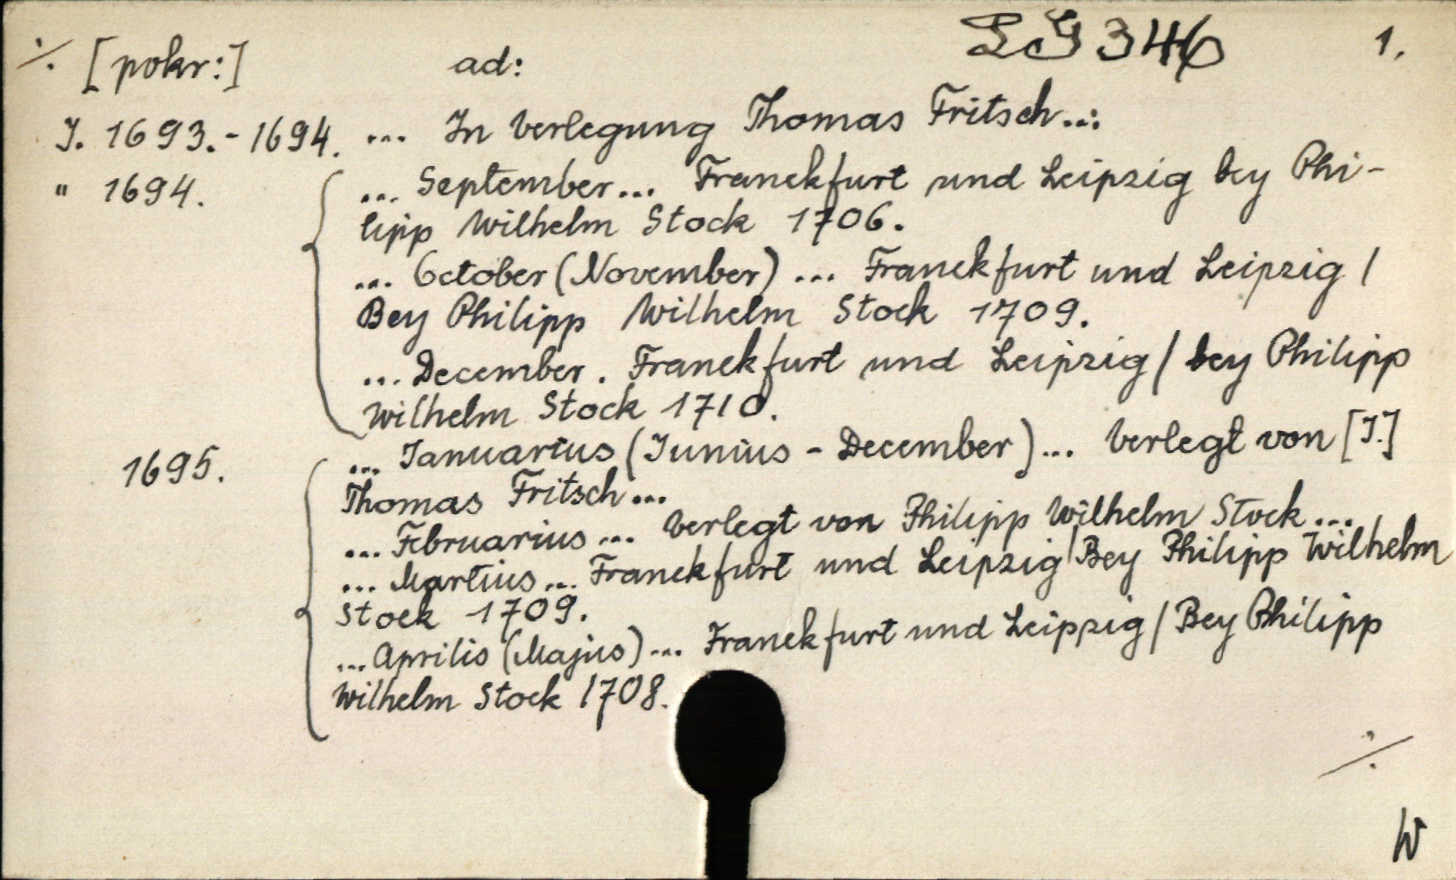 LG 346 1.
./. [pokr:] ad:
J. 1693.-1694. ... In Verlegung Thomas Fritsch...:
" 1694. ... September... Franckfurt und Leipzig bey Phi-
lipp Wilhelm Stock 1706.
... October (November) ... Franckfurt und Leipzig /
Bey Philipp Wilhelm Stock 1709.
... December. Franckfurt und Leipzig / bey Philipp
Wilhelm Stock 1710.
1695. ... Januarius (Junius - December) ... Verlegt von [J.]
Thomas Fritsch ...
... Februarius ... Verlegt von Philipp Wilhelm Stock ...
... Martius ... Franckfurt und Leipzig / Bey Philipp Wilhelm
Stock 1709.
... Aprilis (Majus) ... Franckfurt und Leipzig / Bey Philipp
Wilhelm Stock 1708.
./.
W